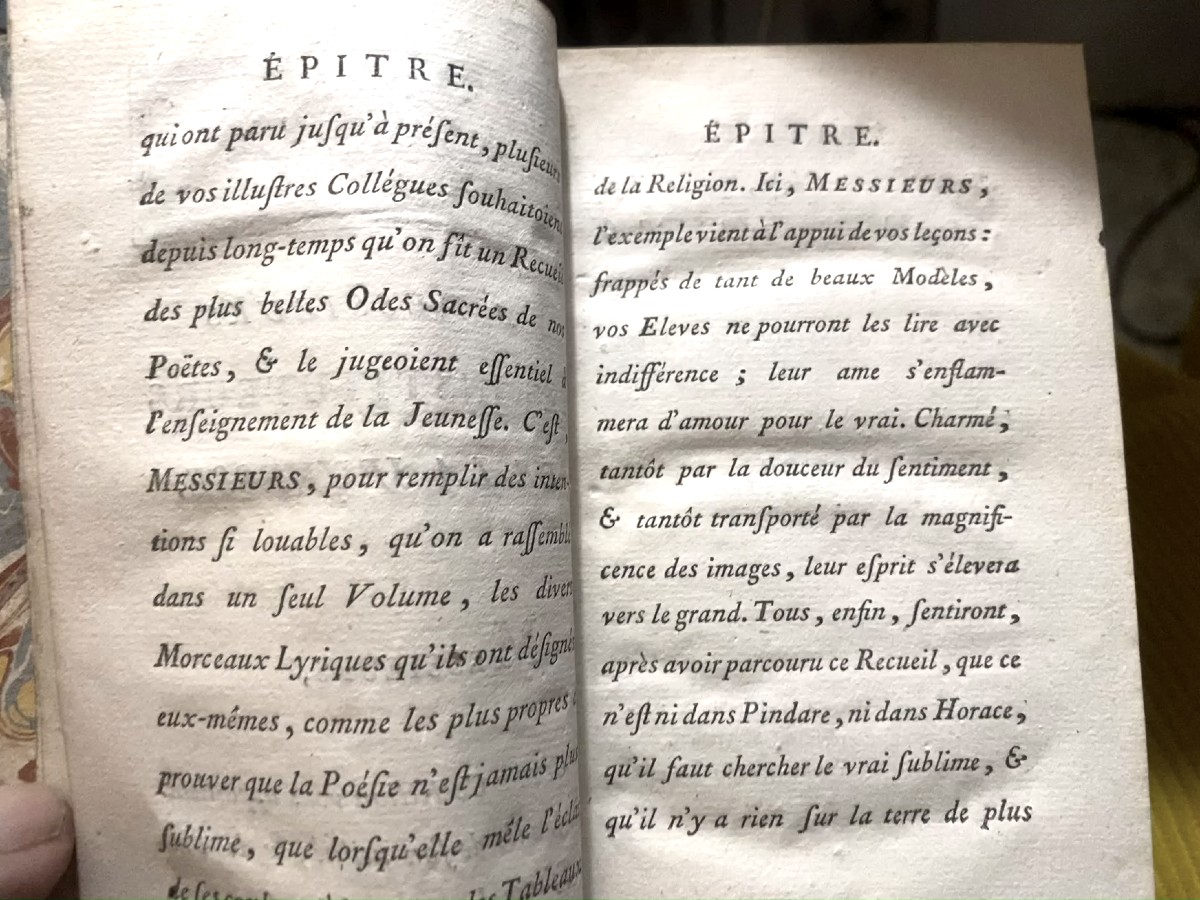 ÉPITRE.
qui ont paru juſqu'à préſent, pluſieurs
de vos illuſtres Collégues ſouhaitoient
depuis long-temps qu'on fît un Recueil
des plus belles Odes Sacrées de nos
Poëtes, & le jugeoient eſſentiel à
l'enſeignement de la Jeuneſſe. C'eſt,
MESSIEURS, pour remplir des inten-
tions ſi louables, qu'on a raſſemblé
dans un ſeul Volume, les divers
Morceaux Lyriques qu'ils ont déſignés
eux-mêmes, comme les plus propres à
prouver que la Poéſie n'eſt jamais plus
ſublime, que lorſqu'elle mêle l'éclat
de ſes Tableaux
ÉPITRE.
de la Religion. Ici, MESSIEURS,
l'exemple vient à l'appui de vos leçons :
frappés de tant de beaux Modèles,
vos Eleves ne pourront les lire avec
indifférence ; leur ame s'enflam-
mera d'amour pour le vrai. Charmé,
tantôt par la douceur du ſentiment,
& tantôt tranſporté par la magnifi-
cence des images, leur eſprit s'élevera
vers le grand. Tous, enfin, ſentiront,
après avoir parcouru ce Recueil, que ce
n'eſt ni dans Pindare, ni dans Horace,
qu'il faut chercher le vrai ſublime, &
qu'il n'y a rien ſur la terre de plus